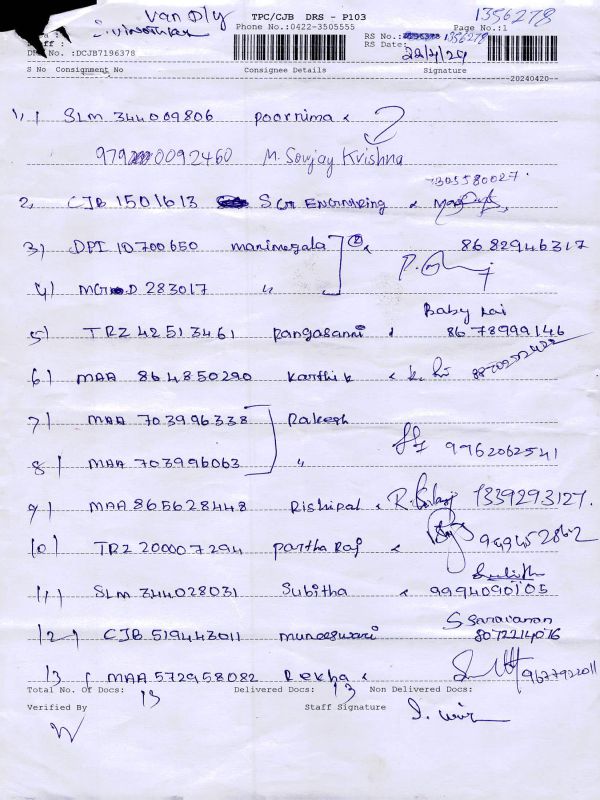 Van Dly TPC/CJB DRS - P103 1356278
Phone No.:0422-3505555 Page No.:1
RS No.: 1356278
RS Date: 22/4/24
DRS No. :DCJB7196378
S No Consignment No Consignee Details Signature
20240420
1) SLM 344009806 poornima
0092460 M. Soujay Krishna
7305580027
2) CJB 1501613 S GT ENGINEERING
3) DPI 10700650 manimegala 2 8682946317
4) MGD 283017 "
Baby rai
5) TRZ 42513461 Rangasami 8678999146
6) MAA 864850290 Karthik
7) MAA 703996338 Rakesh
9962062541
8) MAA 703996063 "
9) MAA 865628448 Rishipal R. Balaji 7339293127
10) TRZ 200007294 partha Raj
11) SLM 344028031 Subitha 9994090105
S Saravanan
12) CJB 519443011 muneeswari 8072214076
13) MAA 572958082 Rekha 9677922011
Total No. Of Docs: 13 Delivered Docs: 13 Non Delivered Docs:
Verified By Staff Signature